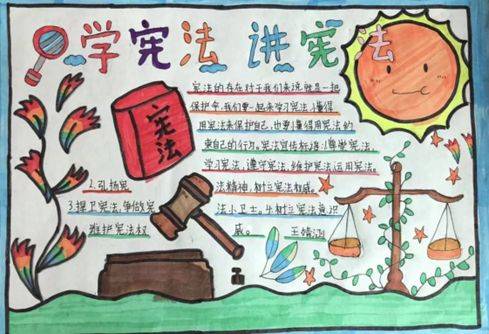 学宪法 讲宪法
宪法
宪法的存在对于我们来说就是一把
保护伞,我们要一起来学习宪法,懂得
用宪法来保护自己,也要懂得用宪法约
束自己的行为。宪法宣传标语:1.尊崇宪法,
学习宪法,遵守宪法,维护宪法,运用宪法。
2.弘扬宪
法精神,树立宪法权威。
3.捍卫宪法,争做宪
法小卫士。4.树立宪法意识
维护宪法权
威。